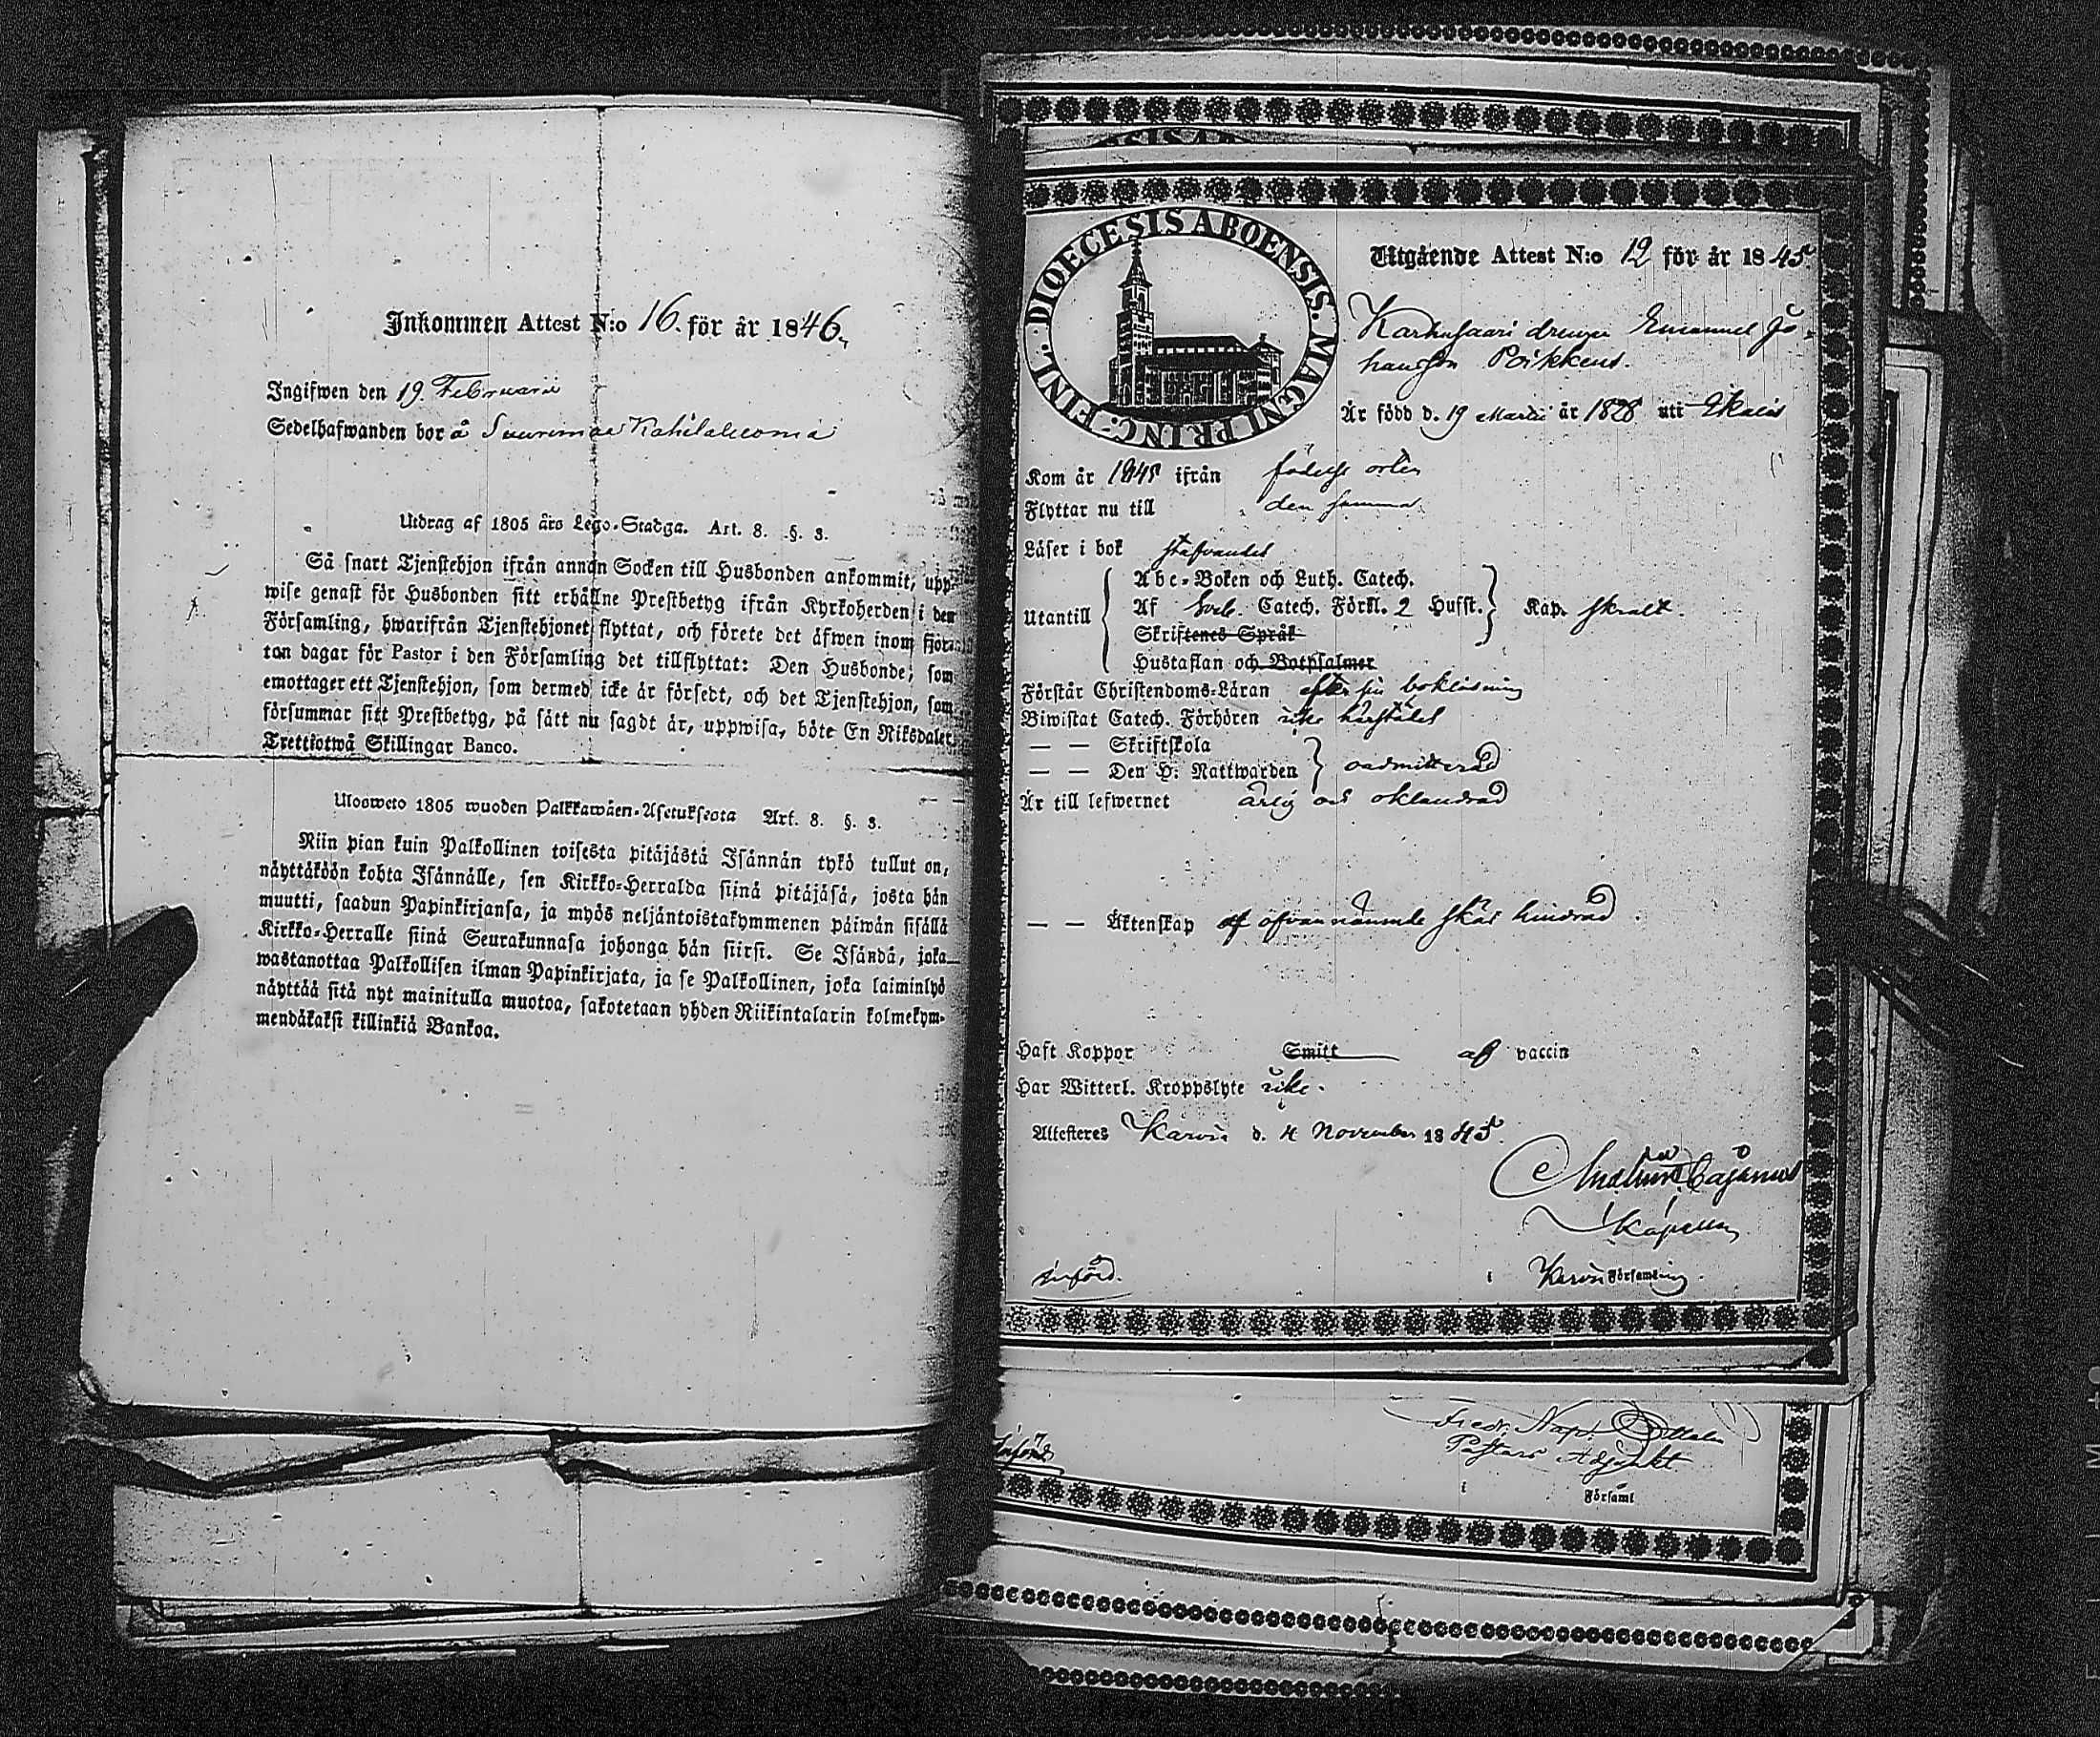 Inkommen Attest N:o 16. för år 1846.
Ingifwen den 19. Februarii
Sedelhafwanden bor å Suurimaa
Utdrag af 1805 års Lego-Stadga. Art. 8. §. 3.
Så snart Tjenstehjon ifrån annan Socken till Husbonden ankommit, upp-
wise genast för Husbonden sitt erhållne Prestbetyg ifrån Kyrkoherden i den
Församling, hwarifrån Tjenstehjonet flyttat, och förete det åfwen inom fjor-
ton dagar för Pastor i den Församling det tillflyttat: Den Husbonde, som
emottager ett Tjenstehjon, som dermed icke är försedt, och det Tjenstehjon, som
försummar sitt Prestbetyg, på sått nu sagdt är, uppwisa, böte En Riksdaler
Trettiotwå Skillingar Banco.
Ulosweto 1805 wuoden Palkkawäen-Asetuksesta Art. 8. §. 3.
Niin pian kuin Palkollinen toisesta pitäjästä Isännän tykö tullut on,
näyttäköön kohta Isännälle, sen Kirkko-Herralda siinä pitäjäsä, josta hän
muutti, saadun Papinkirjansa, ja myös neljäntoistakymmenen päiwän sisällä
Kirkko-Herralle siinä Seurakunnasa johonga hän siirsi. Se Isändä, joka
wastanottaa Palkollisen ilman Papinkirjata, ja se Palkollinen, joka laiminlyö
näyttää sitä nyt mainitulla muotoa, sakotetaan yhden Riikintalarin kolmekym-
mendäkaksi killinkiä Bankoa.
DIOECESIS ABOENSIS. MAGNI PRINC. FINL.
Utgående Attest N:o 12 för år 1845.
Karhusaari drengen Emanuel Jo-
hansson Poikkeus.
Är född d. 19 Martii år 1828 uti Ikalis
Kom år 1845 ifrån födelse orten
Flyttar nu till den samma
Läser i bok stafvandes
Utantill
Abc-Boken och Luth. Catech.
Af Sveb. Catech. Förkl. 2 Hufst. Kap. skralt.
Skriftenes Språk
Hustaflan och Botpsalmer
Förstår Christendoms-Läran efter sin bokläsning
Biwistat Catech. Förhören icke härstädes
— — Skriftskola
— — Den H. Nattwarden oadmitterad
Är till lefwernet ärlig och oklandrad
— — Äktenskap af ofvannämnde skäl hindrad
Haft Koppor Smitt af vaccin
Har Witterl. Kroppslyte icke.
Attesteres Karvia d. 4 November 1845.
Cajanus
Kapellan
införd.
i Karvia Församling.
Införd
Fredr. Nap.
Pastors Adjunkt.
i Församl